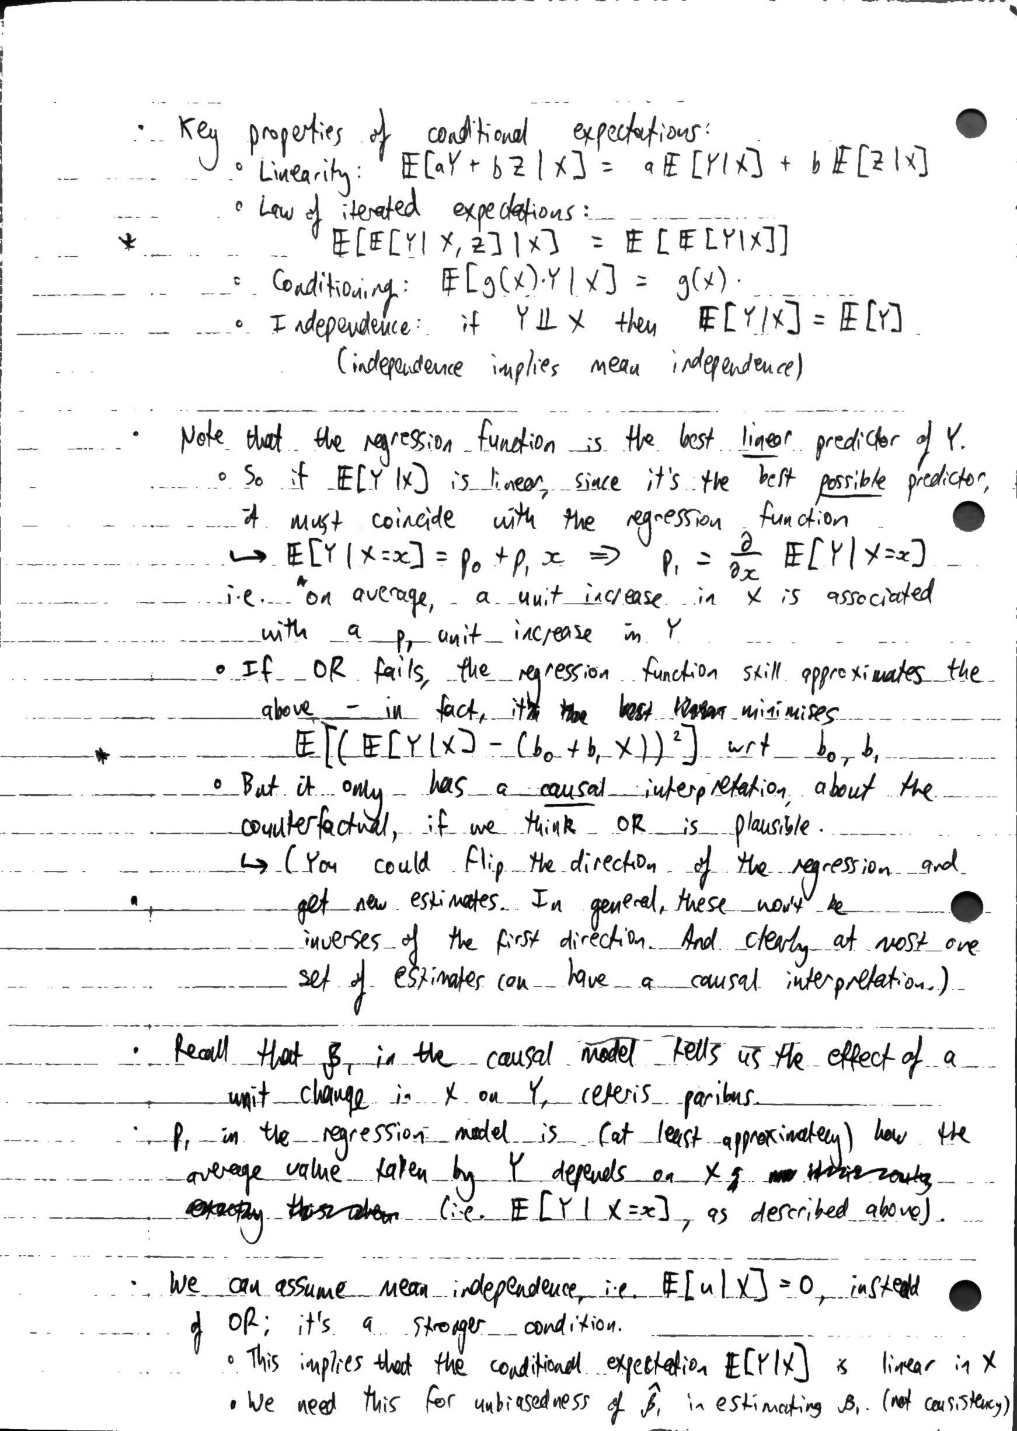 · Key properties of conditional expectations:
◦ Linearity: 𝔼[aY + bZ | X] = a𝔼[Y|X] + b𝔼[Z|X]
◦ Law of iterated expectations:
* 𝔼[𝔼[Y|X,Z]|X] = 𝔼[𝔼[Y|X]]
◦ Conditioning: 𝔼[g(X)·Y|X] = g(X)·
◦ Independence: if Y ⫫ X then 𝔼[Y|X] = 𝔼[Y]
(independence implies mean independence)
· Note that the regression function is the best linear predictor of Y.
◦ So if 𝔼[Y|X] is linear, since it's the best possible predictor,
it must coincide with the regression function
↳ 𝔼[Y|X=x] = ρ₀ + ρ₁x ⇒ ρ₁ = ∂/∂x 𝔼[Y|X=x]
i.e. "on average, a unit increase in X is associated
with a ρ₁ unit increase in Y
◦ If OR fails, the regression function still approximates the
above – in fact, it minimises
* 𝔼[(𝔼[Y|X] - (b₀ + b₁X))²] wrt b₀, b₁
◦ But it only has a causal interpretation, about the
counterfactual, if we think OR is plausible.
↳ (You could flip the direction of the regression and
get new estimates. In general, these won't be
inverses of the first direction. And clearly at most one
set of estimates can have a causal interpretation.)
· Recall that β₁ in the causal model tells us the effect of a
unit change in X on Y, ceteris paribus.
· ρ₁ in the regression model is (at least approximately) how the
average value taken by Y depends on X
(i.e. 𝔼[Y|X=x], as described above).
· We can assume mean independence, i.e. 𝔼[u|X] = 0, instead
of OR; it's a stronger condition.
◦ This implies that the conditional expectation 𝔼[Y|X] is linear in X
◦ We need this for unbiasedness of β̂₁ in estimating β₁. (not consistency)